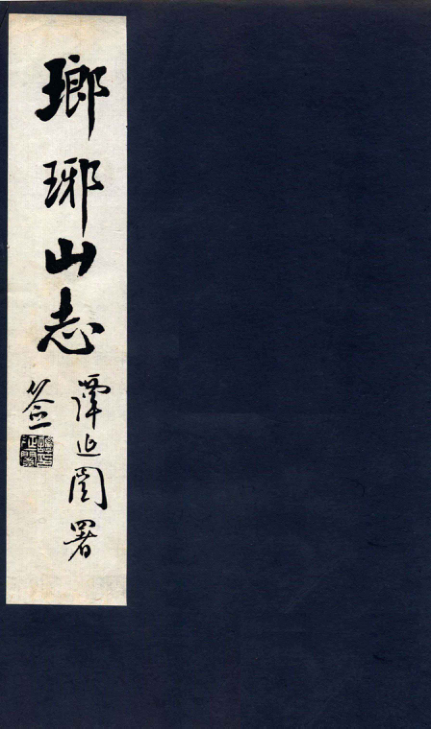 瑯琊山志
譚延闓署
签